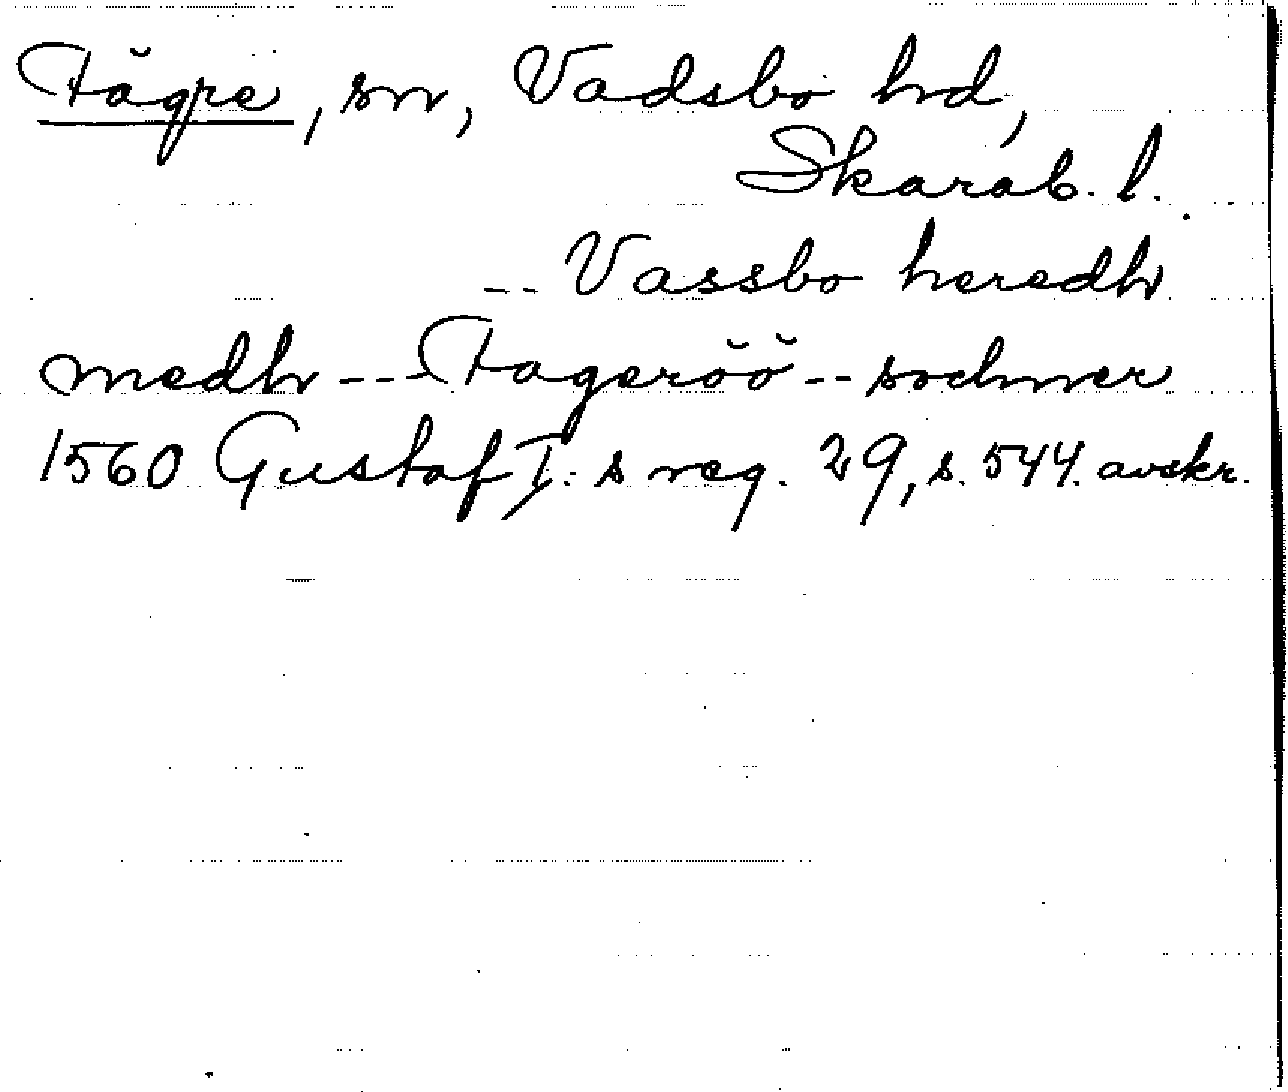 Fägre, sn, Vadsbo hd,
Skarab. l.
-- Vassbo heredh
medh --- Fageröö -- sochner
1560 Gustaf I:s reg. 29, s. 544. avskr.